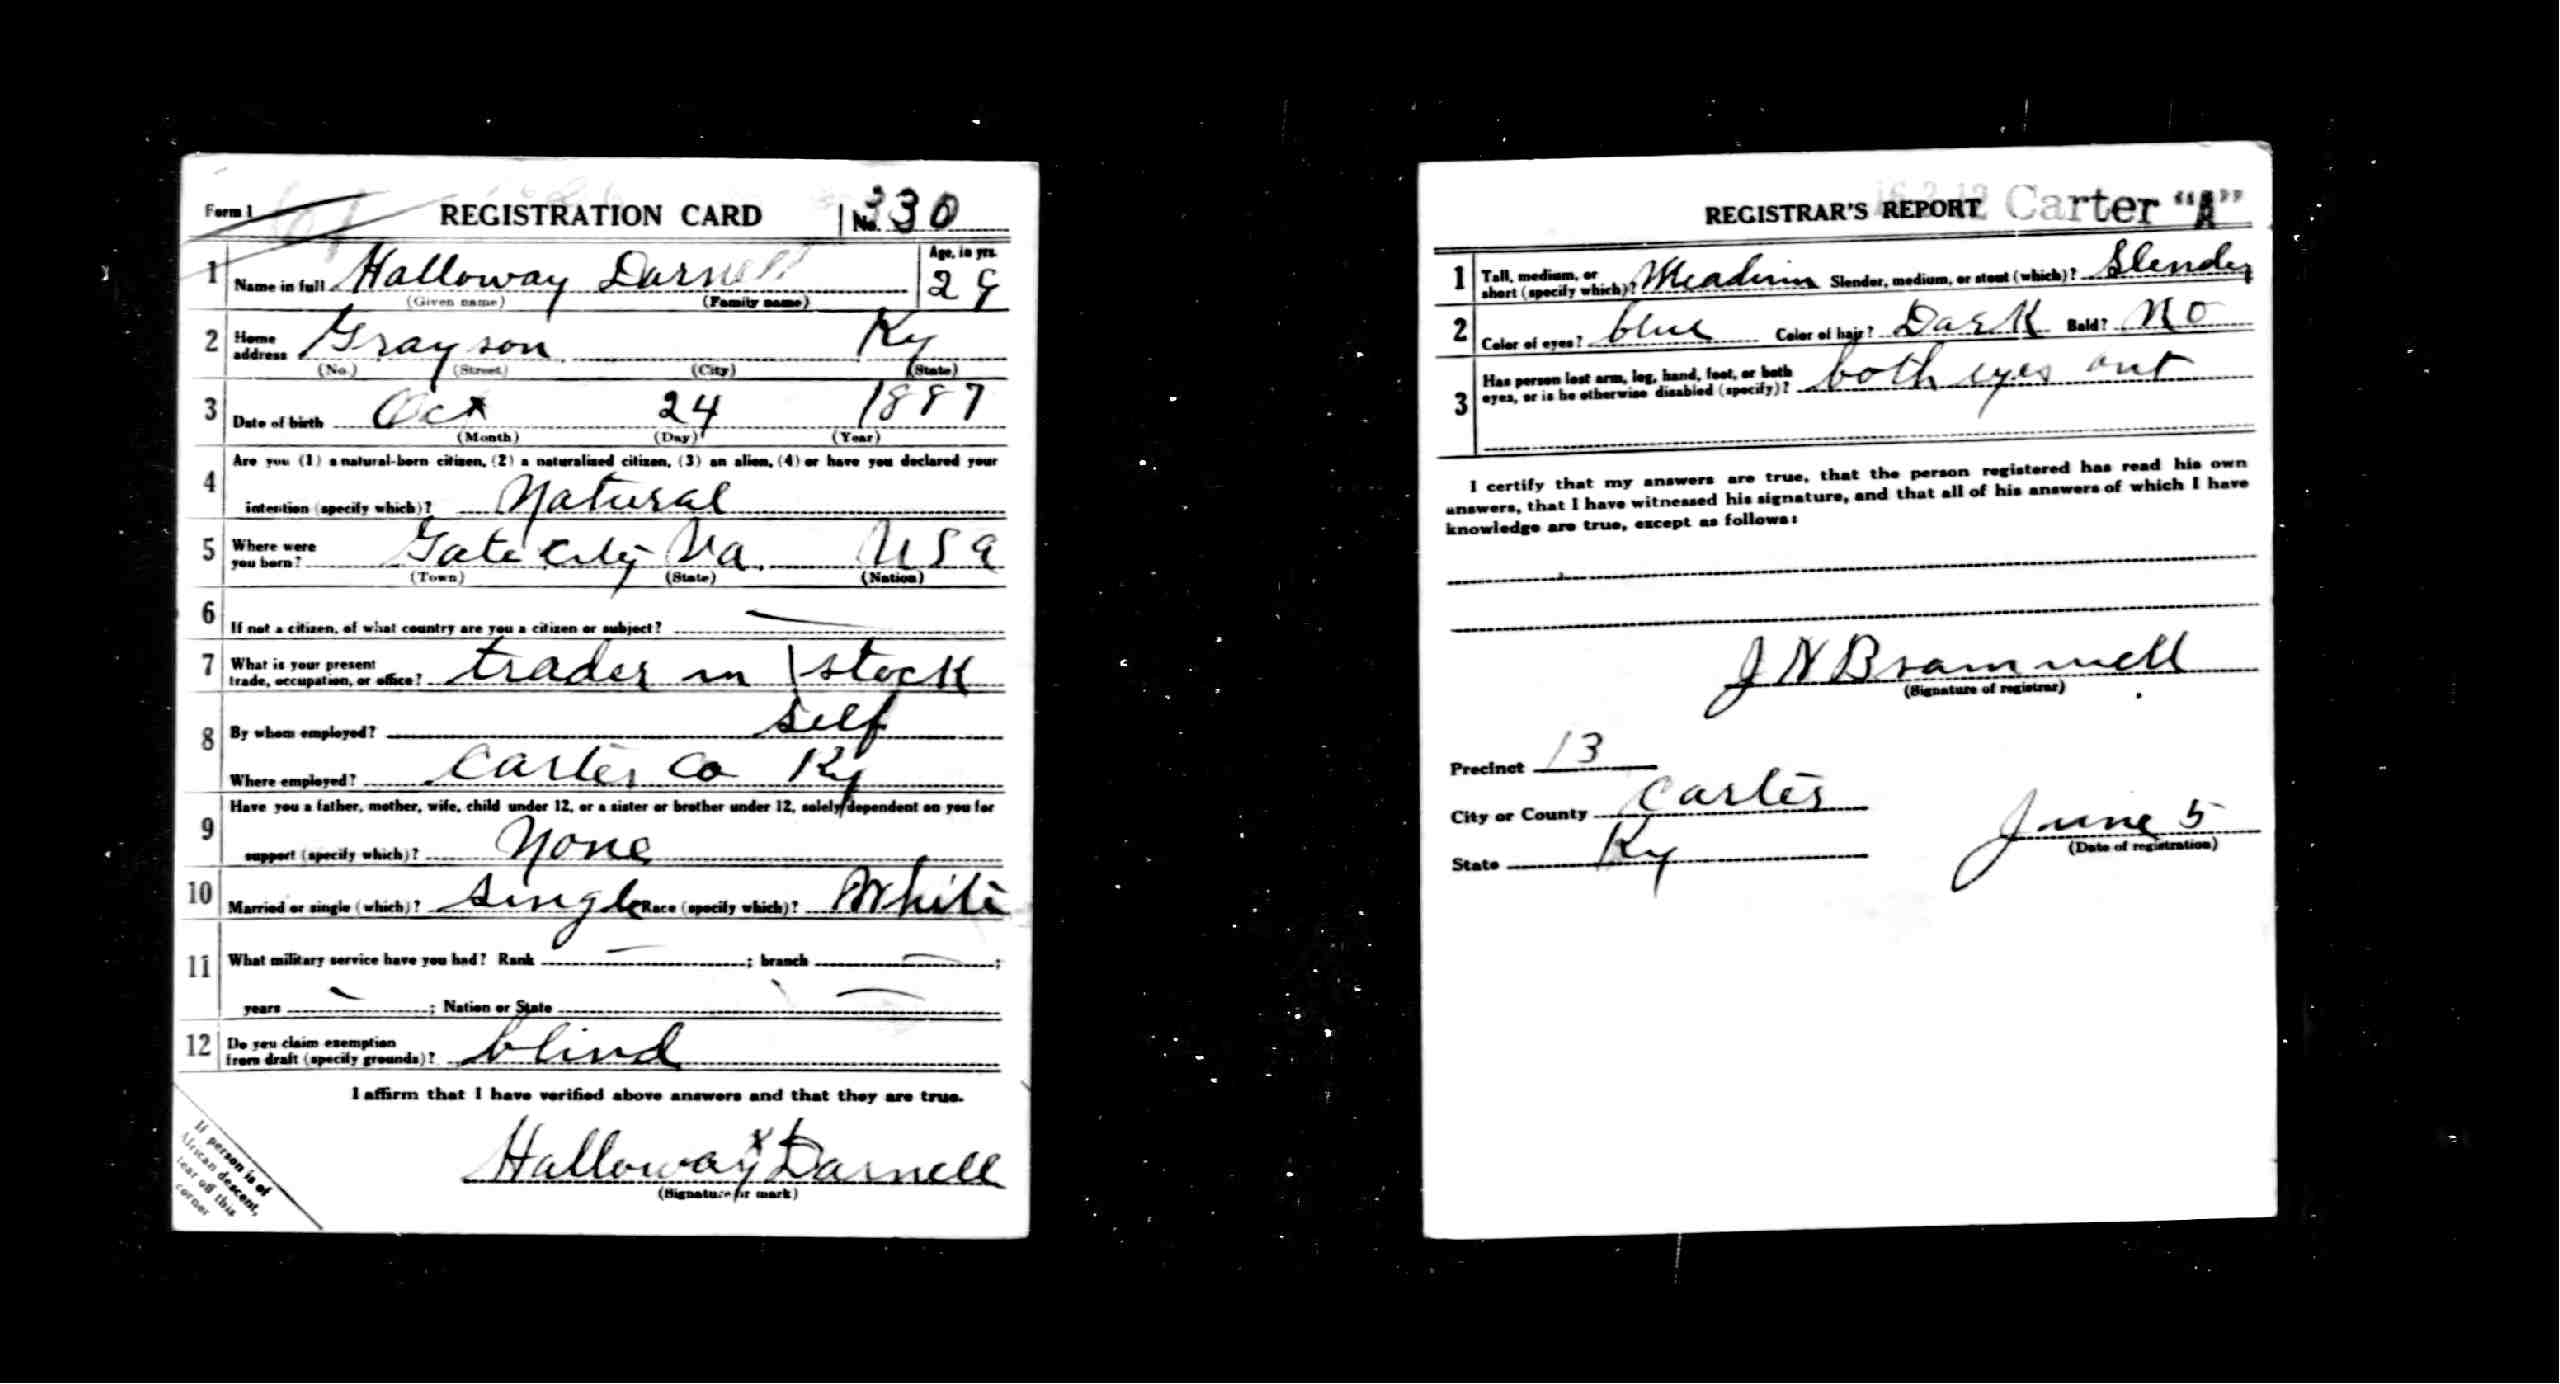 Form 1 REGISTRATION CARD No. 330
1 Name in full Halloway Darnell Age, in yrs. 29
(Given name) (Family name)
2 Home address Grayson Ky
(No.) (Street) (City) (State)
3 Date of birth Oct 24 1887
(Month) (Day) (Year)
4 Are you (1) a natural-born citizen, (2) a naturalized citizen, (3) an alien, (4) or have you declared your
intention (specify which)? Natural
5 Where were you born? Gate City Va. USA
(Town) (State) (Nation)
6 If not a citizen, of what country are you a citizen or subject? —
7 What is your present trade, occupation, or office? trader in stock
8 By whom employed? self
Where employed? Carter Co Ky
9 Have you a father, mother, wife, child under 12, or a sister or brother under 12, solely dependent on you for
support (specify which)? None
10 Married or single (which)? single Race (specify which)? White
11 What military service have you had? Rank — ; branch — ;
years — ; Nation or State —
12 Do you claim exemption from draft (specify grounds)? blind
I affirm that I have verified above answers and that they are true.
Halloway X Darnell
(Signature or mark)
If person is of
African descent,
tear off this
corner
REGISTRAR'S REPORT Carter "A"
1 Tall, medium, or short (specify which)? Meadium Slender, medium, or stout (which)? Slender
2 Color of eyes? blue Color of hair? Dark Bald? No
3 Has person lost arm, leg, hand, foot, or both eyes, or is he otherwise disabled (specify)? both eyes out
I certify that my answers are true, that the person registered has read his own
answers, that I have witnessed his signature, and that all of his answers of which I have
knowledge are true, except as follows:
J N Brammell
(Signature of registrar)
Precinct 13
City or County Carter
State Ky
June 5
(Date of registration)